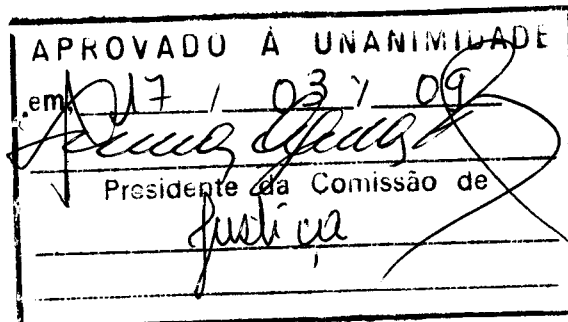 APROVADO À UNANIMIDADE
em 17 / 03 / 09
Presidente da Comissão de
Justiça